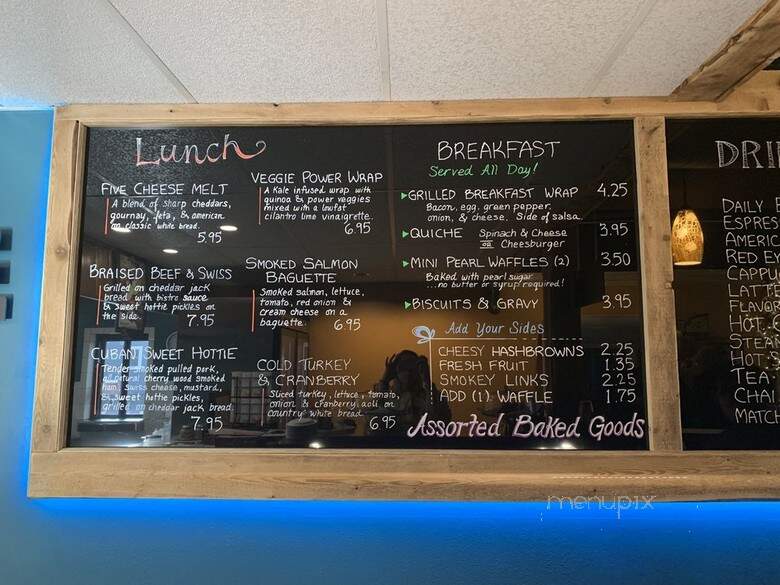 Lunch
FIVE CHEESE MELT
A blend of sharp cheddars,
gournay, feta, & american
on classic white bread.
5.95
BRAISED BEEF & SWISS
Grilled on cheddar jack
bread with bistro sauce
& sweet hottie pickles on
the side.
7.95
CUBAN SWEET HOTTIE
Tender smoked pulled pork,
all natural cherry wood smoked
ham, swiss cheese, mustard,
& sweet hottie pickles,
grilled on cheddar jack bread
7.95
VEGGIE POWER WRAP
A Kale infused wrap with
quinoa & power veggies
mixed with a lowfat
cilantro lime vinaigrette.
6.95
SMOKED SALMON
BAGUETTE
Smoked salmon, lettuce,
tomato, red onion &
cream cheese on a
baguette.
6.95
COLD TURKEY
& CRANBERRY
Sliced turkey, lettuce, tomato,
onion & cranberry aoli on
country white bread
6.95
BREAKFAST
Served All Day!
GRILLED BREAKFAST WRAP 4.25
Bacon, egg, green pepper,
onion, & cheese. Side of salsa
QUICHE Spinach & Cheese 3.95
or Cheesburger
MINI PEARL WAFFLES (2) 3.50
Baked with pearl sugar
...no butter or syrup required!
BISCUITS & GRAVY 3.95
Add Your Sides
CHEESY HASHBROWNS 2.25
FRESH FRUIT 1.35
SMOKEY LINKS 2.25
ADD (1) WAFFLE 1.75
Assorted Baked Goods
DRI
DAILY
ESPRES
AMERIC
RED EY
CAPPU
LATTE
FLAVOR
HOT
STEAM
HOT
TEA
CHAI
MATCH
menupix